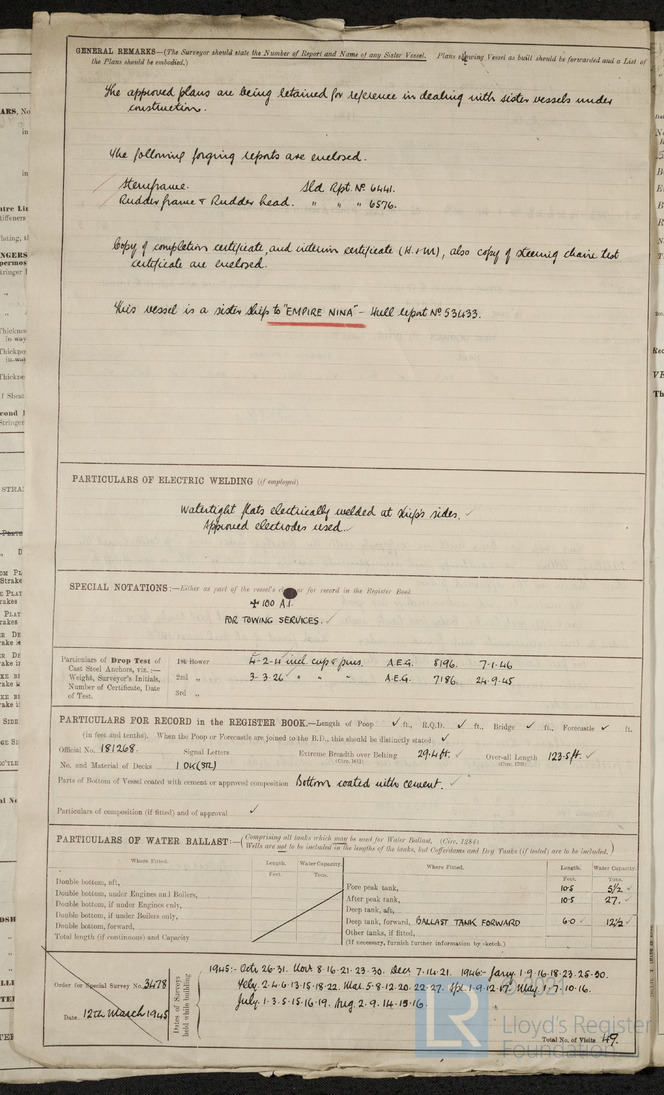 GENERAL REMARKS—(The Surveyor should state the Number of Report and Name of any Sister Vessel. Plans showing Vessel as built should be forwarded and a List of
the Plans should be embodied.)
The approved plans are being retained for reference in dealing with sister vessels under
construction.
The following forging reports are enclosed.
Sternframe. Sld Rpt. No 6441.
Rudder frame & Rudder head. " " " 6576.
Copy of completion certificate, and interim certificate (H. & M), also copy of steering chains test
certificate are enclosed.
This vessel is a sister ship to "EMPIRE NINA" – Hull report No 53433.
PARTICULARS OF ELECTRIC WELDING (if employed)
Watertight flats electrically welded at ship's sides. ✓
Approved electrodes used. ✓
SPECIAL NOTATIONS:—Either as part of the vessel's or for record in the Register Book
✠ 100 A.1.
FOR TOWING SERVICES. ✓
Particulars of Drop Test of
Cast Steel Anchors, viz. :—
Weight, Surveyor's Initials,
Number of Certificate, Date
of Test.
1st Bower 4-2-4 incl. cup & pins. A.E.G. 8196. 7-1-46
2nd „ 3-3-26 " " " A.E.G. 7186. 24-9-45
3rd „
PARTICULARS FOR RECORD in the REGISTER BOOK.—Length of Poop ✓ ft., R.Q.D. ✓ ft., Bridge ✓ ft., Forecastle ✓ ft.
(in feet and tenths). When the Poop or Forecastle are joined to the B.D., this should be distinctly stated ✓
Official No. 181268. Signal Letters Extreme Breadth over Belting 29.4 ft. ✓ Over-all Length 123.5 ft. ✓
(Circ. 1611) (Circ. 1703)
No. and Material of Decks 1 DK (STL)
Parts of Bottom of Vessel coated with cement or approved composition Bottom coated with cement. ✓
Particulars of composition (if fitted) and of approval ✓
PARTICULARS OF WATER BALLAST:—(Comprising all tanks which may be used for Water Ballast, (Circ. 1284)
Wells are not to be included in the lengths of the tanks, but Cofferdams and Dry Tanks (if tested) are to be included.)
Where Fitted. Length. Water Capacity.
Feet. Tons.
Double bottom, aft,
Double bottom, under Engines and Boilers,
Double bottom, if under Engines only,
Double bottom, if under Boilers only,
Double bottom, forward,
Total length (if continuous) and Capacity
Where Fitted. Length. Water Capacity.
Feet. Tons.
Fore peak tank, 10.5 5½ ✓
After peak tank, 10.5 27. ✓
Deep tank, aft,
Deep tank, forward, BALLAST TANK FORWARD 6.0 ✓ 12½ ✓
Other tanks, if fitted,
(If necessary, furnish further information by sketch.)
Order for Special Survey No. 3478
Date 12th March 1945
Dates of Surveys
held while building
1945:- Octr 26-31. Novr 8-16-21-23-30. Decr 7-14-21. 1946:- Jany. 1-9-16-18-23-25-30.
Feby. 2-4-6-13-15-18-22. Mar. 5-8-12-20-22-27. Apl. 1-9-12-17. May. 1-7-10-16.
July. 1-3-5-15-16-19. Aug. 2-9-14-15-16.
Total No. of Visits 49.
LR
Lloyd's Register
Foundation